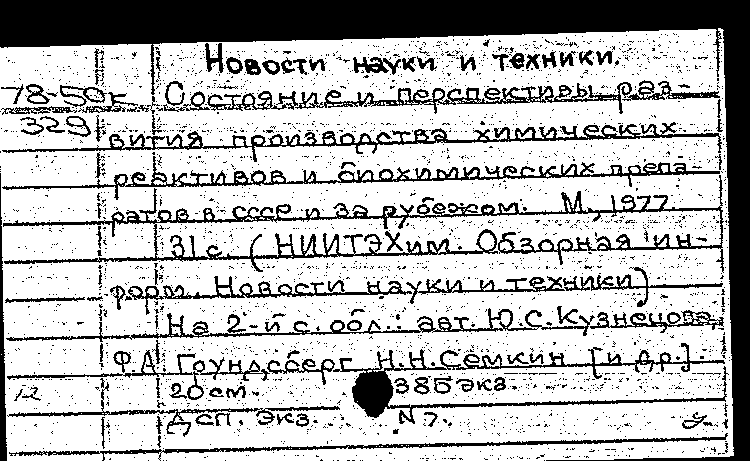 Новости науки и техники.
78-50к Состояние и перспективы раз-
329 вития производства химических
реактивов и биохимических препа-
ратов в СССР и за рубежом. М., 1977.
31 с. (НИИТЭХим. Обзорная ин-
форм. Новости науки и техники)
На 2-й с. обл.: авт. Ю.С. Кузнецова,
Ф.А. Грундсберг, Н.Н. Семкин [и др.].
12 20 см. 385 экз.
ДСП. Экз. N 7.